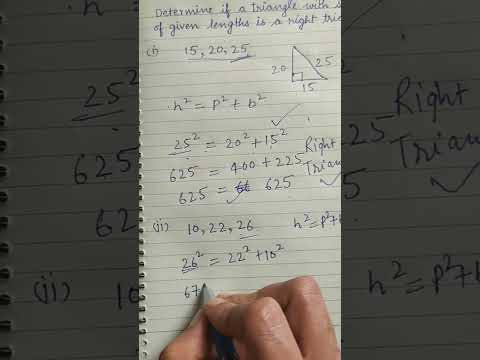 Determine if a Triangle with s
of given lengths is a right tri
(i) 15, 20, 25
20 25
15
h² = p² + b²
25² = 20² + 15²
625 = 400 + 225
625 = 625
Right
Trian
(ii) 10, 22, 26 h² = p² + b
26² = 22² + 10²
67
25²
625
625
(ii) 10
25 Right
Trian
h² = p² + b